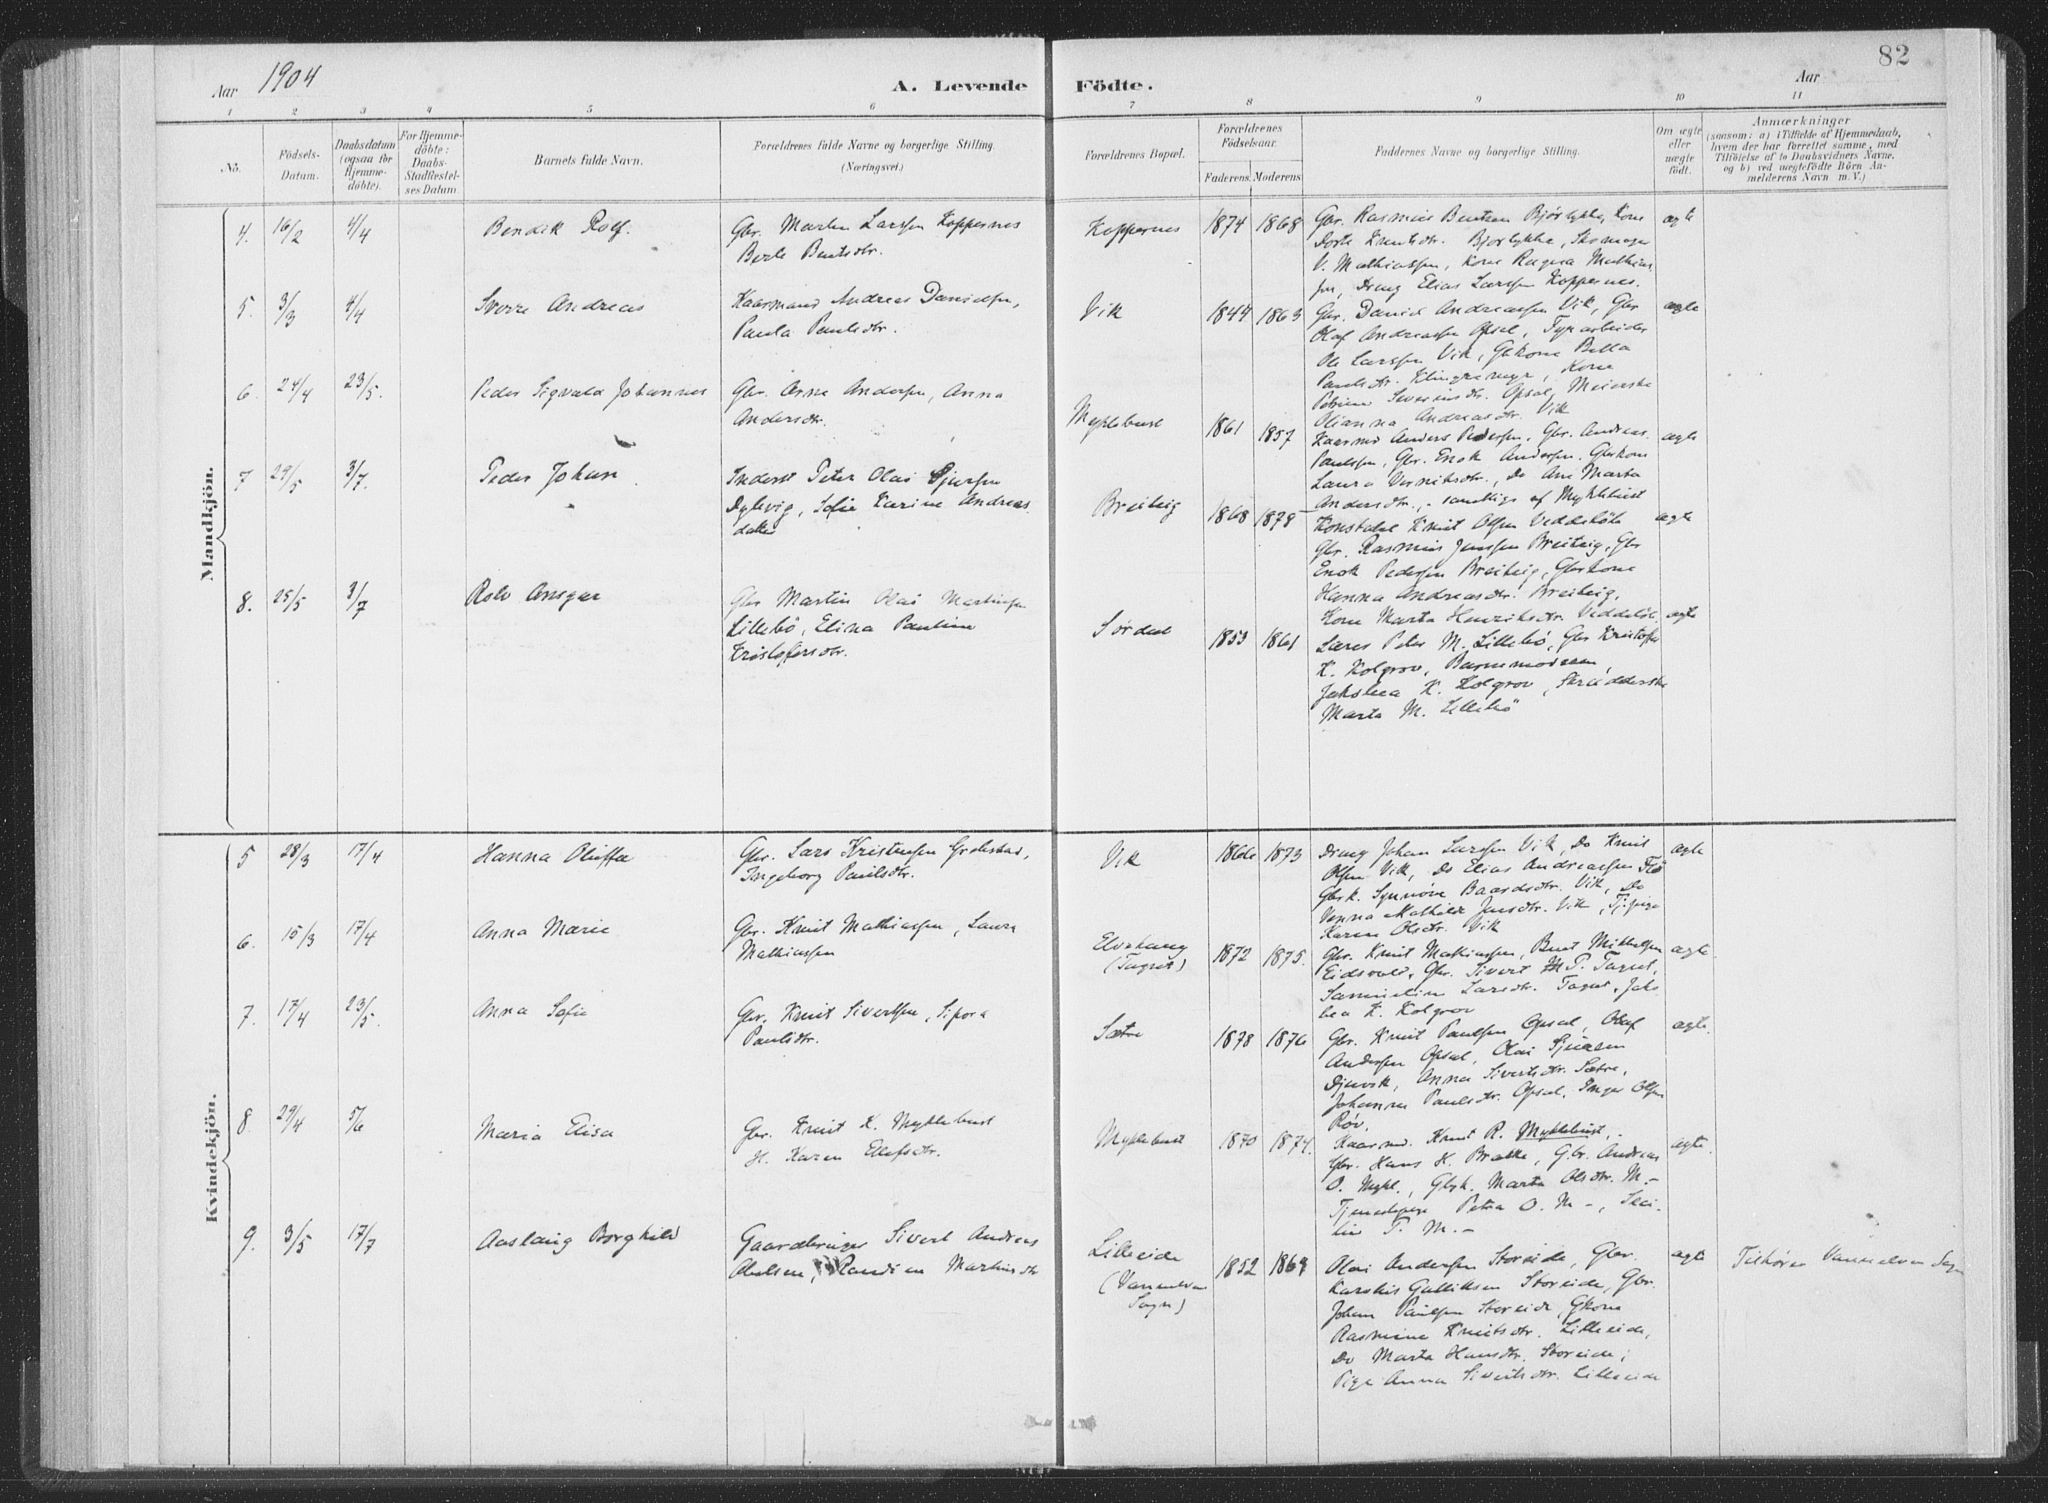 82
Aar 1904
A. Levende Födte.
Aar
1 2 3 4 5 6 7 8 9 10 11
No.
Födsels-
Datum.
Daabsdatum
(ogsaa for
Hjemme-
döbte).
For Hjemme-
döbte:
Daabs-
Stadfæstel-
ses Datum.
Barnets fulde Navn.
Forældrenes fulde Navne og borgerlige Stilling.
(Næringsvei.)
Forældrenes Bopæl.
Forældrenes
Födselsaar.
Faderens. Moderens
Faddernes Navne og borgerlige Stilling.
Om ægte
eller
uægte
födt.
Anmærkninger
(saasom: a) i Tilfælde af Hjemmedaab,
hvem der har forrettet samme, med
Tilföielse af to Daabsvidners Navne,
og b) ved uægtefödte Börn An-
melderens Navn m. V.)
Mandkjön.
4. 16/2 4/4 Bendik Rolf.
Gbr. Martin Larssen Koppernes
Berte Bentsdtr.
Koppernes 1874 1868
Gbr. Rasmus Bentsen Bjørlykke, Kone
Dorte Knutsdtr. Bjørlykke, Skomager
V. Mathiassen, Kone Ragna Mathias
sen, Dreng Elias Larssen Koppernes.
ægte
5. 3/3 4/4 Sverre Andreas
Kaarmand Andreas Danielsen,
Paula Paulsdtr.
Vik 1844 1863
Gbr. Daniel Andreassen Vik, Gbr
Olaf Andreassen Opsal, arbeider
Ole Larssen Vik, Gbkone Bella
Paulsdtr. Klingremyr, Kone
Petrine Severinsdtr. Opsal, Meierske
Olianna Andreasdtr. Vik
ægte
6. 24/4 23/5. Peder Sigvald Johannes
Gbr. Arne Andersen, Anna
Andersdtr.
Myklebust 1861 1857
Kaarmd Anders Pedersen, Gbr. Andreas
Paulssen, Gbr. Enok Andersen, Gbrkone
Laura Do Ane Marta
Andersdtr., samtlige af Myklebust
ægte
7 29/5 3/7. Peder Johan
Inderst Peter Olai Sjursen
Dylevig, Sofie Karine Andreas
datter
Breiteig 1868 1878
Konstabel Knut Olsen Veddebøle
Gbr. Rasmus Jenssen Breiteig, Gbr
Enok Pedersen Breiteig, Gbrkone
Hanna Andreasdtr. Breiteig,
Kone Marta Henriksdtr Veddebøl.
ægte
8. 25/5 3/7 Rolv Ansgar
Gbr Martin Olai Martinsen
Lillebö, Elina Pauline
Kristofersdtr.
Sørdal 1853 1861
Lærer Peter M. Lillebö, Gbr Kristofer
K. Kolgrov, Barnemoderen,
Jakobea K. Kolgrov, Skrædderske
Marta M. Lillebö
ægte
Kvindekjön.
5 28/3 17/4 Hanna Oluffa
Gbr. Lars Kristensen Grodestad,
Ingeborg Paulsdtr.
Vik 1866 1873
Dreng Johan Larssen Vik, Do Knut
Olsen Vik, Do Elias Andreassen Flö
Gbrk. Synnöve Baardsdtr. Vik, Do
Vanna Mathilde Jensdtr. Vik, Tj.pige
Karen Olsdtr. Vik
ægte
6. 15/3 17/4 Anna Marie
Gbr. Knut Mathiassen, Laura
Mathiassen
Elvehaug
(Tagset) 1872 1875.
Gbr. Knut Mathiassen, Bent Mikkelsen
Eidsvold, Gbr. Sivert M. P. Tagset,
Larsdtr. Tagset, Jako
bea K. Kolgrov
ægte.
7. 17/4 23/5. Anna Sofie
Gbr. Knut Sivertsen, Sipora
Paulsdtr.
Sætre 1878 1876
Gbr. Knut Paulsen Opsal, Olaf
Andersen Opsal, Olai Sjursen
Djupvik, Anna Sivertsdtr. Sætre,
Johanna Paulsdtr. Opsal, Inger Olsen
Röv.
ægte.
8. 29/4 5/6 Maria Elisa
Gbr. Knut K. Myklebust
H. Karen Elefsdtr.
Myklebust 1870 1874.
Kaarmd. Knut R. Myklebust,
Gbr. Hans H. Brække, Gbr. Andreas
O. Mykl., Gbrk. Marta Olsdtr. M.-
Tjenestepige Petra O. M-, Seci-
lie P. M.-
ægte.
9. 3/5 17/7 Aaslaug Borghild
Gaardbruger Sivert Andreas
Abelsen, Randien Martinsdtr
Lilleeide
(Vannelven
Sogn) 1852 1869
Olai Andersen Storeide, Gbr.
Karolus Gulliksen Storeide, Gbr.
Johan Paulsen Storeide, Gkone
Rasmine Knutsdtr. Lilleeide,
Do Marta Hansdtr. Storeide;
Pige Anna Sivertsdtr. Lilleeide
ægte
Tilhører Vannelven Sogn